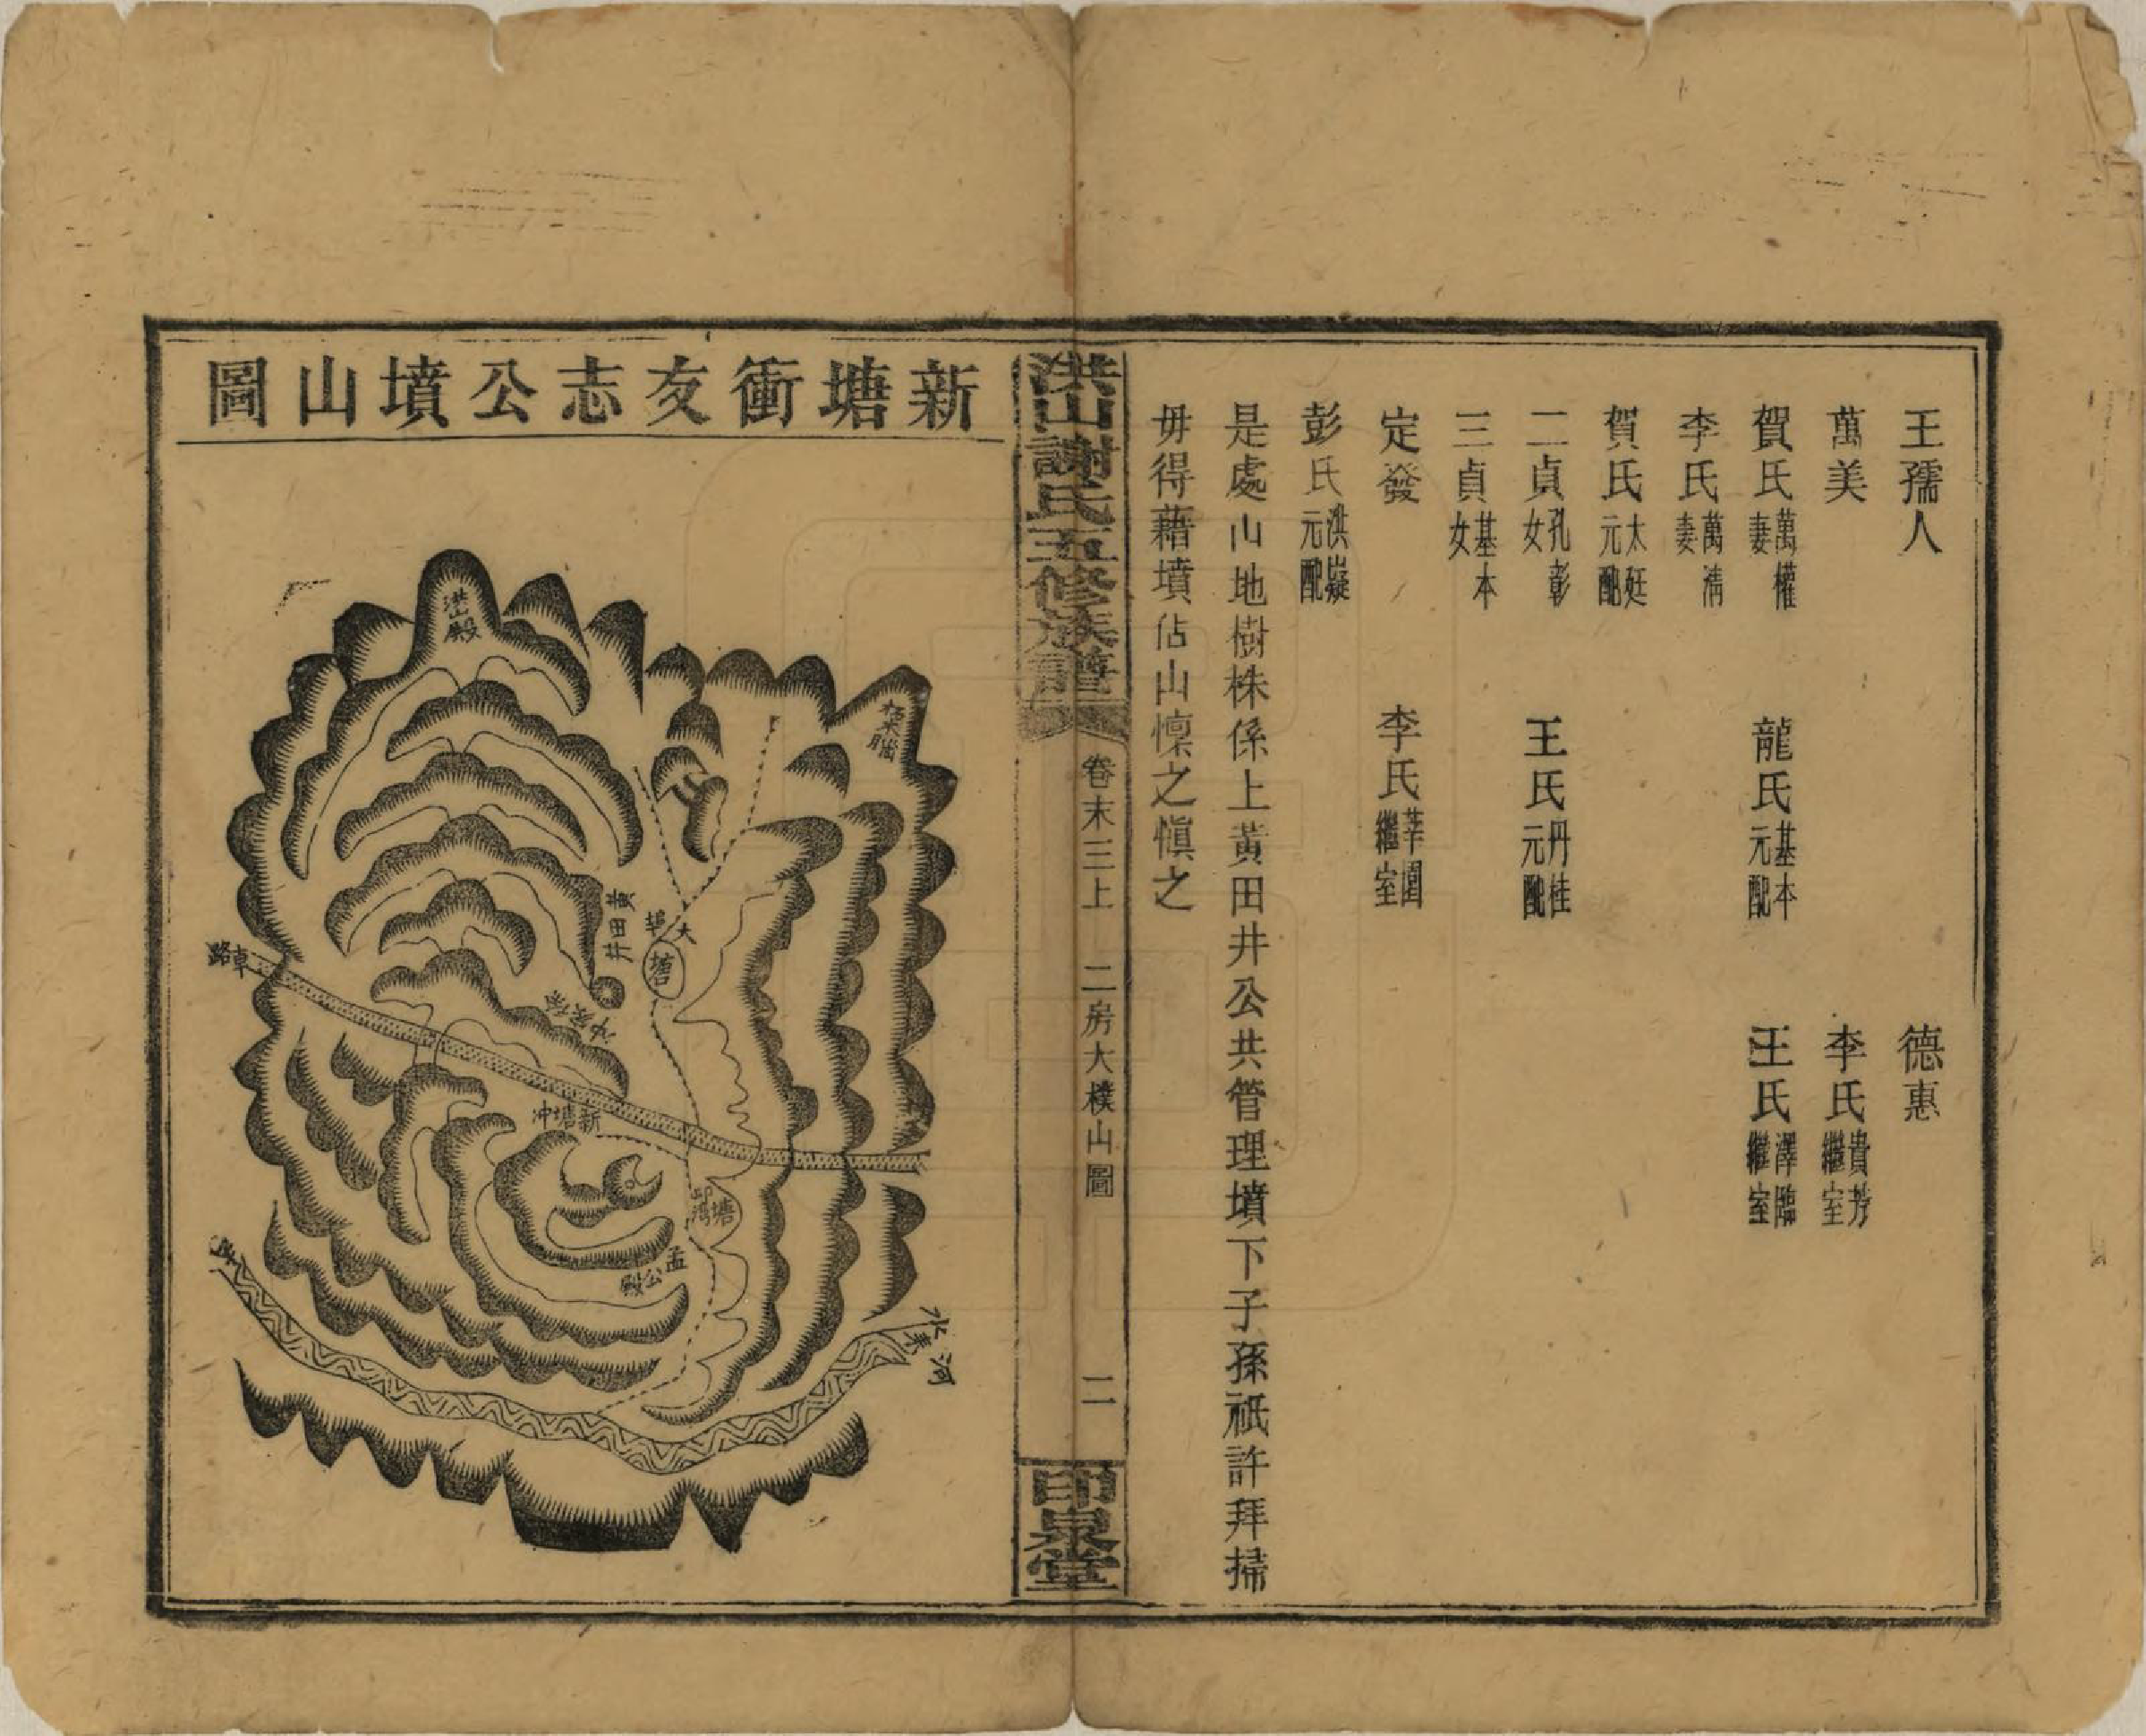 王孺人 德惠
萬美 李氏貴芳繼室
賀氏萬權妻 龍氏基本元配 王氏澤臨繼室
李氏萬淸妻
賀氏太廷元配
二貞孔彰女 王氏丹桂元配
三貞基本女
定發 李氏莘園繼室
彭氏洪嶷元配
是處山地樹株係上黃田井公共管理墳下子孫祇許拜掃
毋得藉墳佔山懍之愼之
洪山謝氏五修族譜
卷末三上 二房大樸山圖
二
印泉堂
新塘衝友志公墳山圖
洪山殿
黃田井
大埠塘
車路
新塘冲
孟公殿
河東水